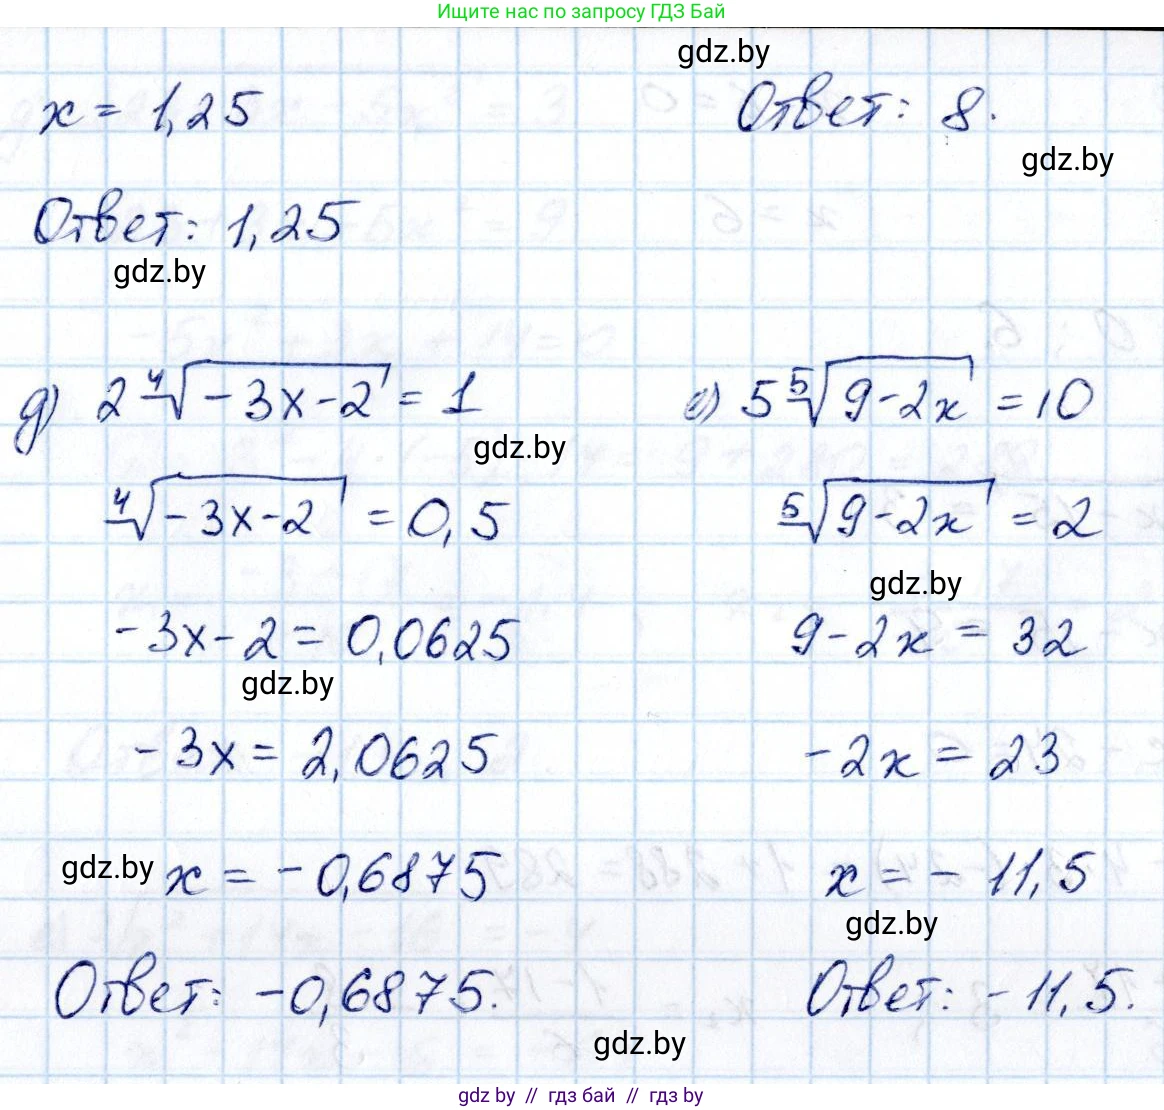 Ищите нас по запросу ГДЗ Бай
gdz.by
x = 1,25
Ответ: 8.
gdz.by
Ответ: 1,25
gdz.by
д) 2 ⁴√(-3x-2) = 1
е) 5 ⁵√(9-2x) = 10
gdz.by
⁴√(-3x-2) = 0,5
⁵√(9-2x) = 2
gdz.by
-3x-2 = 0,0625
9-2x = 32
gdz.by
-3x = 2,0625
-2x = 23
gdz.by
x = -0,6875
x = - 11,5
gdz.by
Ответ: -0,6875.
Ответ: - 11,5.
gdz.by
gdz by // гдз бай // гдз by